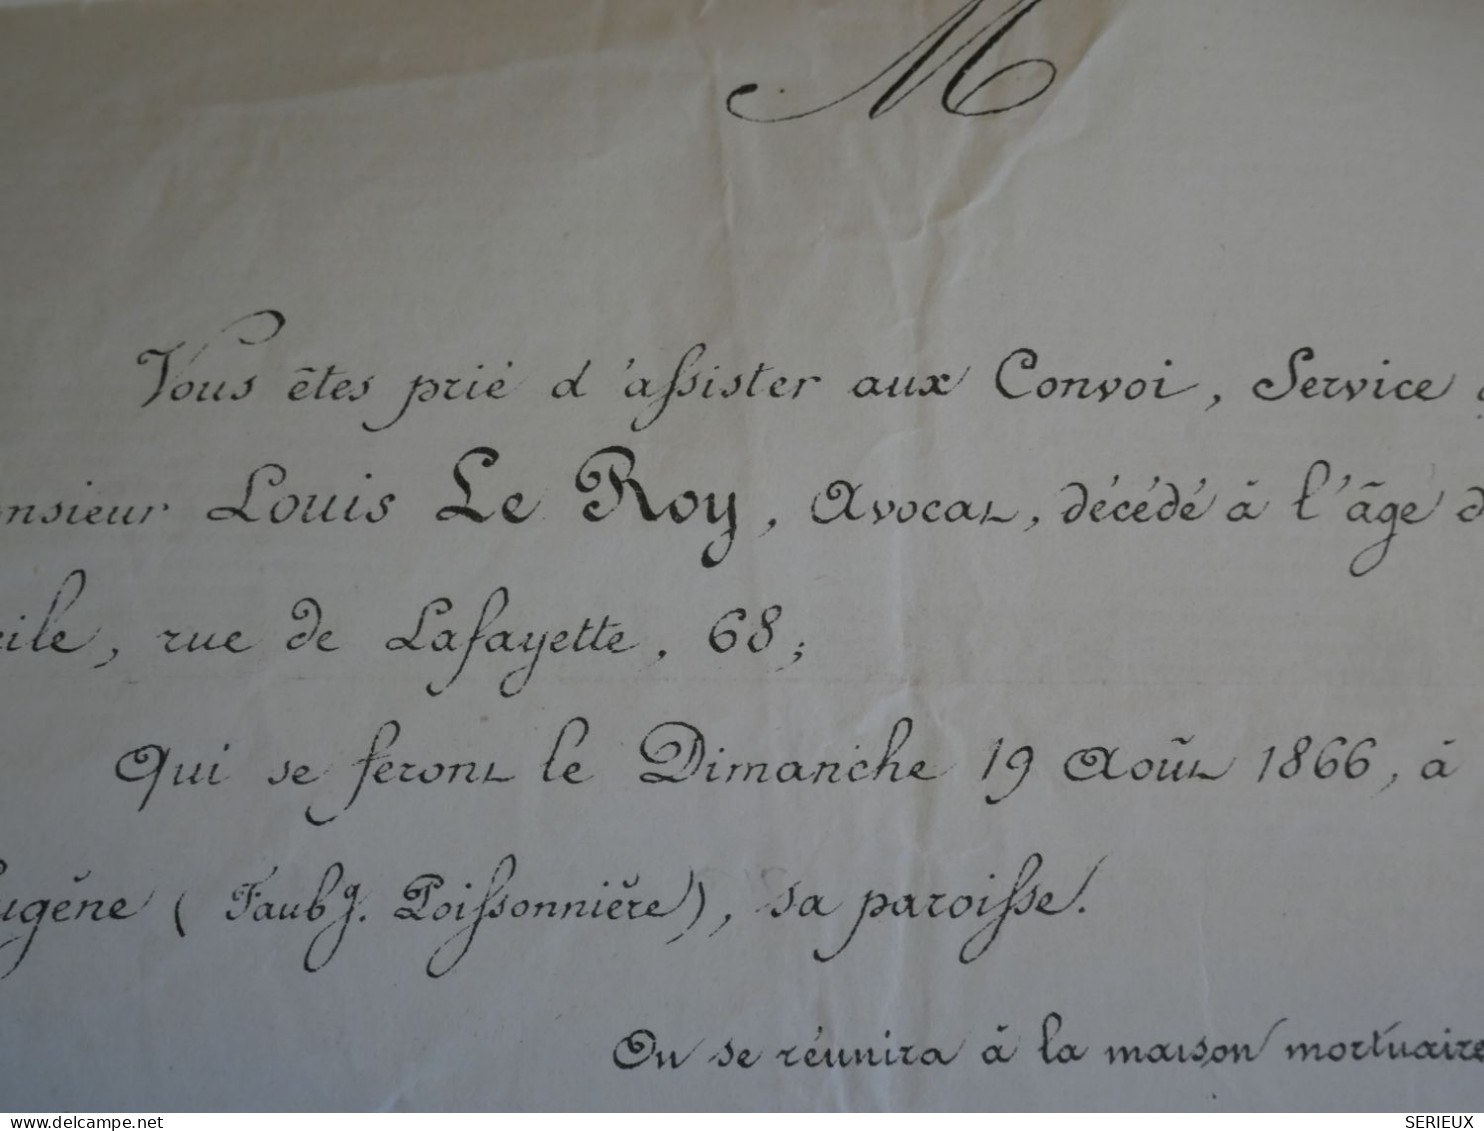 M
Vous êtes prié d'assister aux Convoi, Service
nsieur Louis Le Roy, Avocat, décédé à l'âge d
ile, rue de Lafayette, 68;
Qui se feront le Dimanche 19 Août 1866, à
ugène (Faubg. Poissonnière), sa paroisse.
On se réunira à la maison mortuaire
www.delcampe.net
SERIEUX